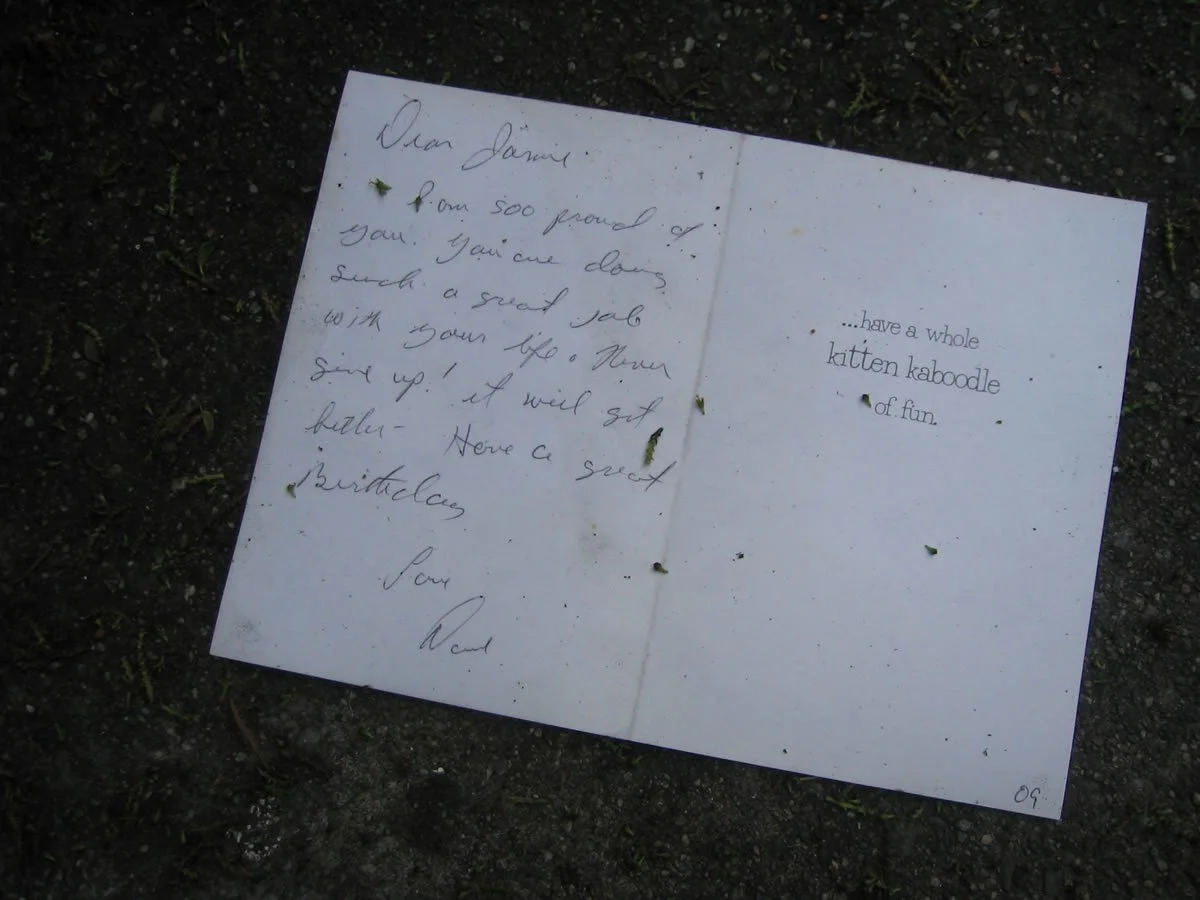 Dear Jamie
I am soo proud of
you. You are doing
such a great job
with your life. Never
give up! it will get
better- Have a great
Birthday
Love
...have a whole
kitten kaboodle
of fun.
09